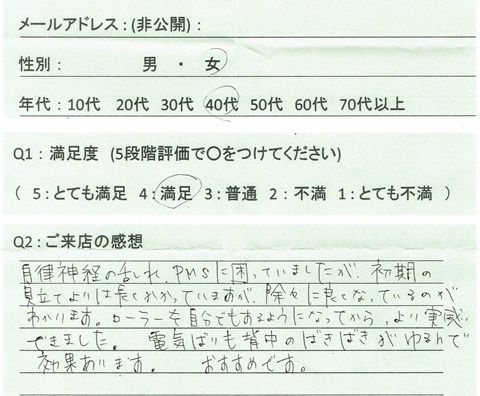 メールアドレス:(非公開):
性別: 男 ・ 女
年代:10代 20代 30代 40代 50代 60代 70代以上
Q1:満足度 (5段階評価で〇をつけてください)
( 5:とても満足 4:満足 3:普通 2:不満 1:とても不満 )
Q2:ご来店の感想
自律神経の乱れ、PMSに困っていましたが、初期の
見立てよりは長くかかっていますが、除々に良くなっているのが
わかります。ローラーを自分でもするようになってから、より実感
できました。 電気ばりも背中のばきばきがゆるんで
効果あります。 おすすめです。